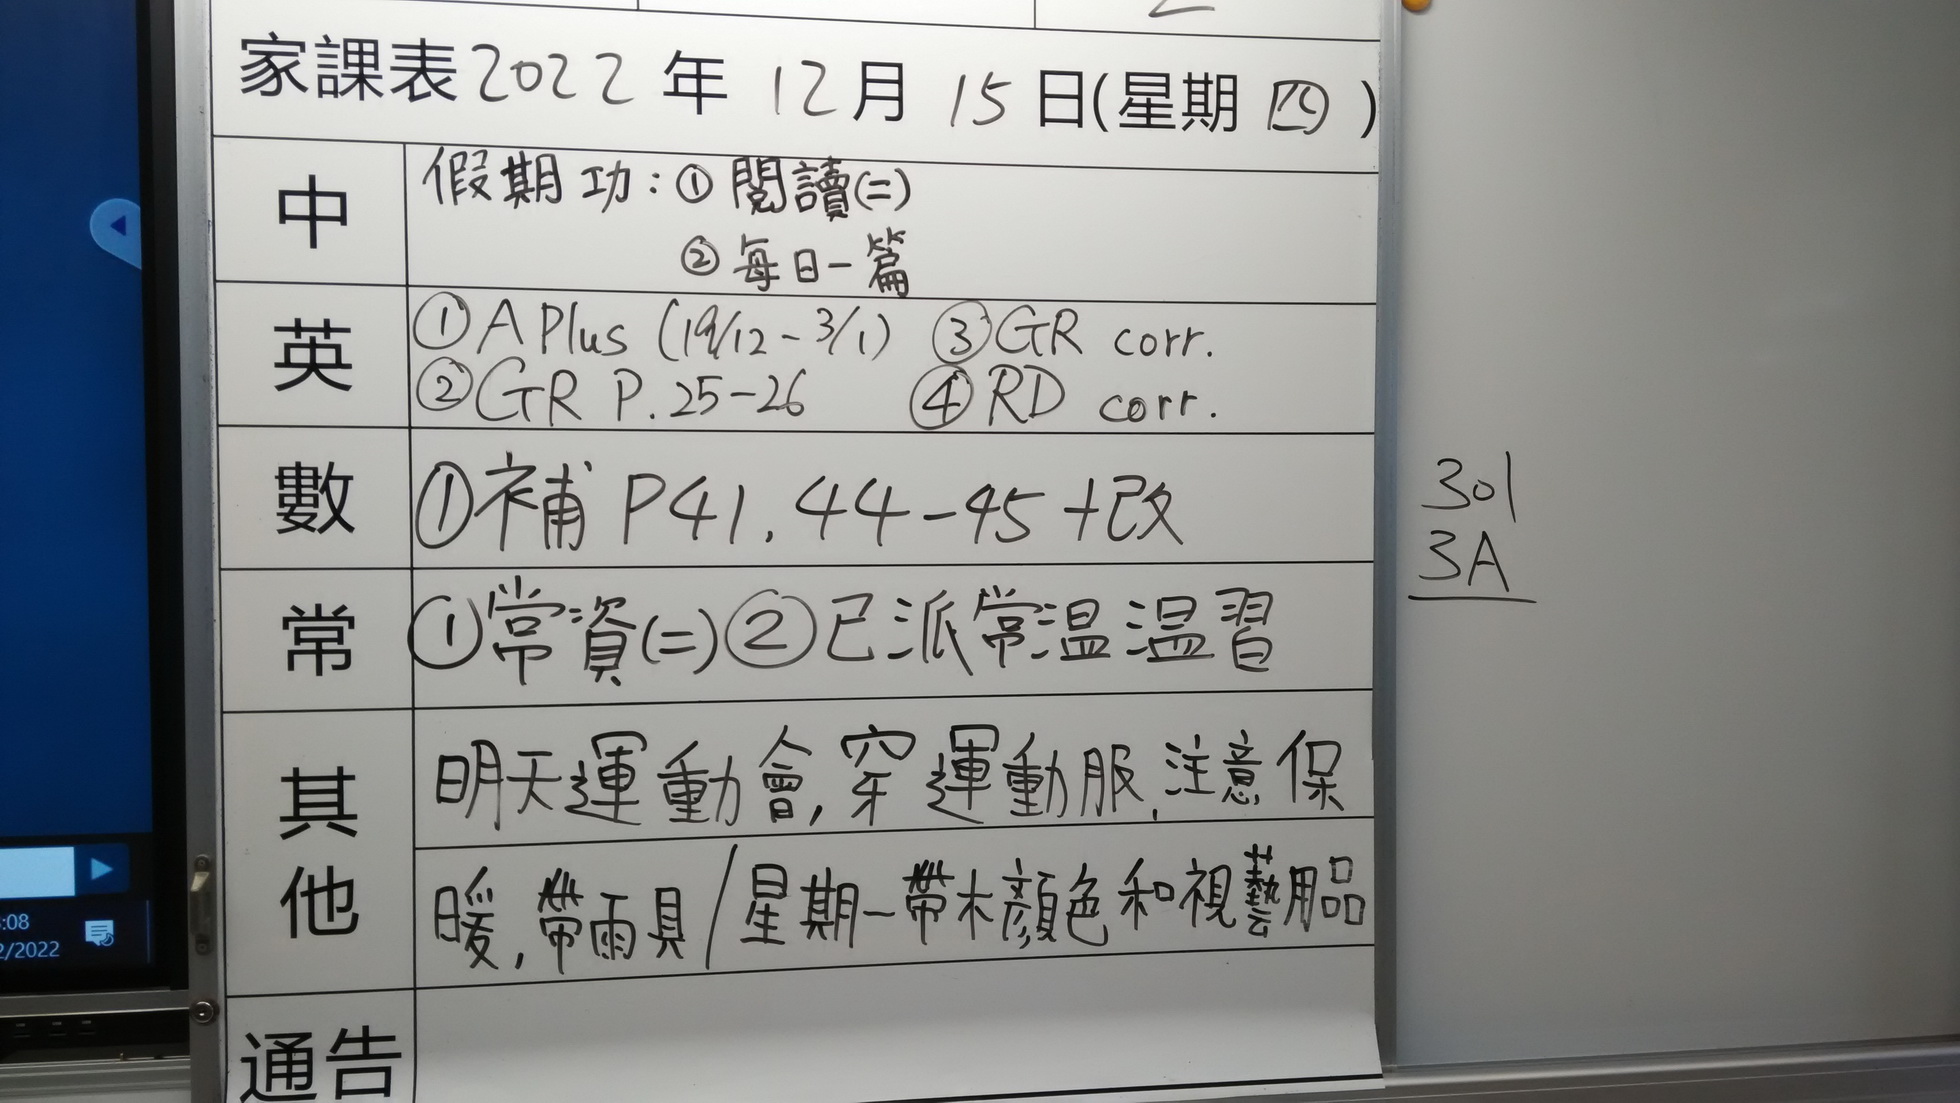 家課表2022年12月15日(星期四)
中
假期功:①閱讀(二)
②每日一篇
英
①A Plus (19/12-3/1) ③GR corr.
②GR P.25-26 ④RD corr.
數
①補P41,44-45+改
常
①常資(二)②已派常温温習
其他
明天運動會,穿運動服,注意保
暖,帶雨具/星期一帶木顏色和視藝用品
通告
301
3A
:08
2/2022